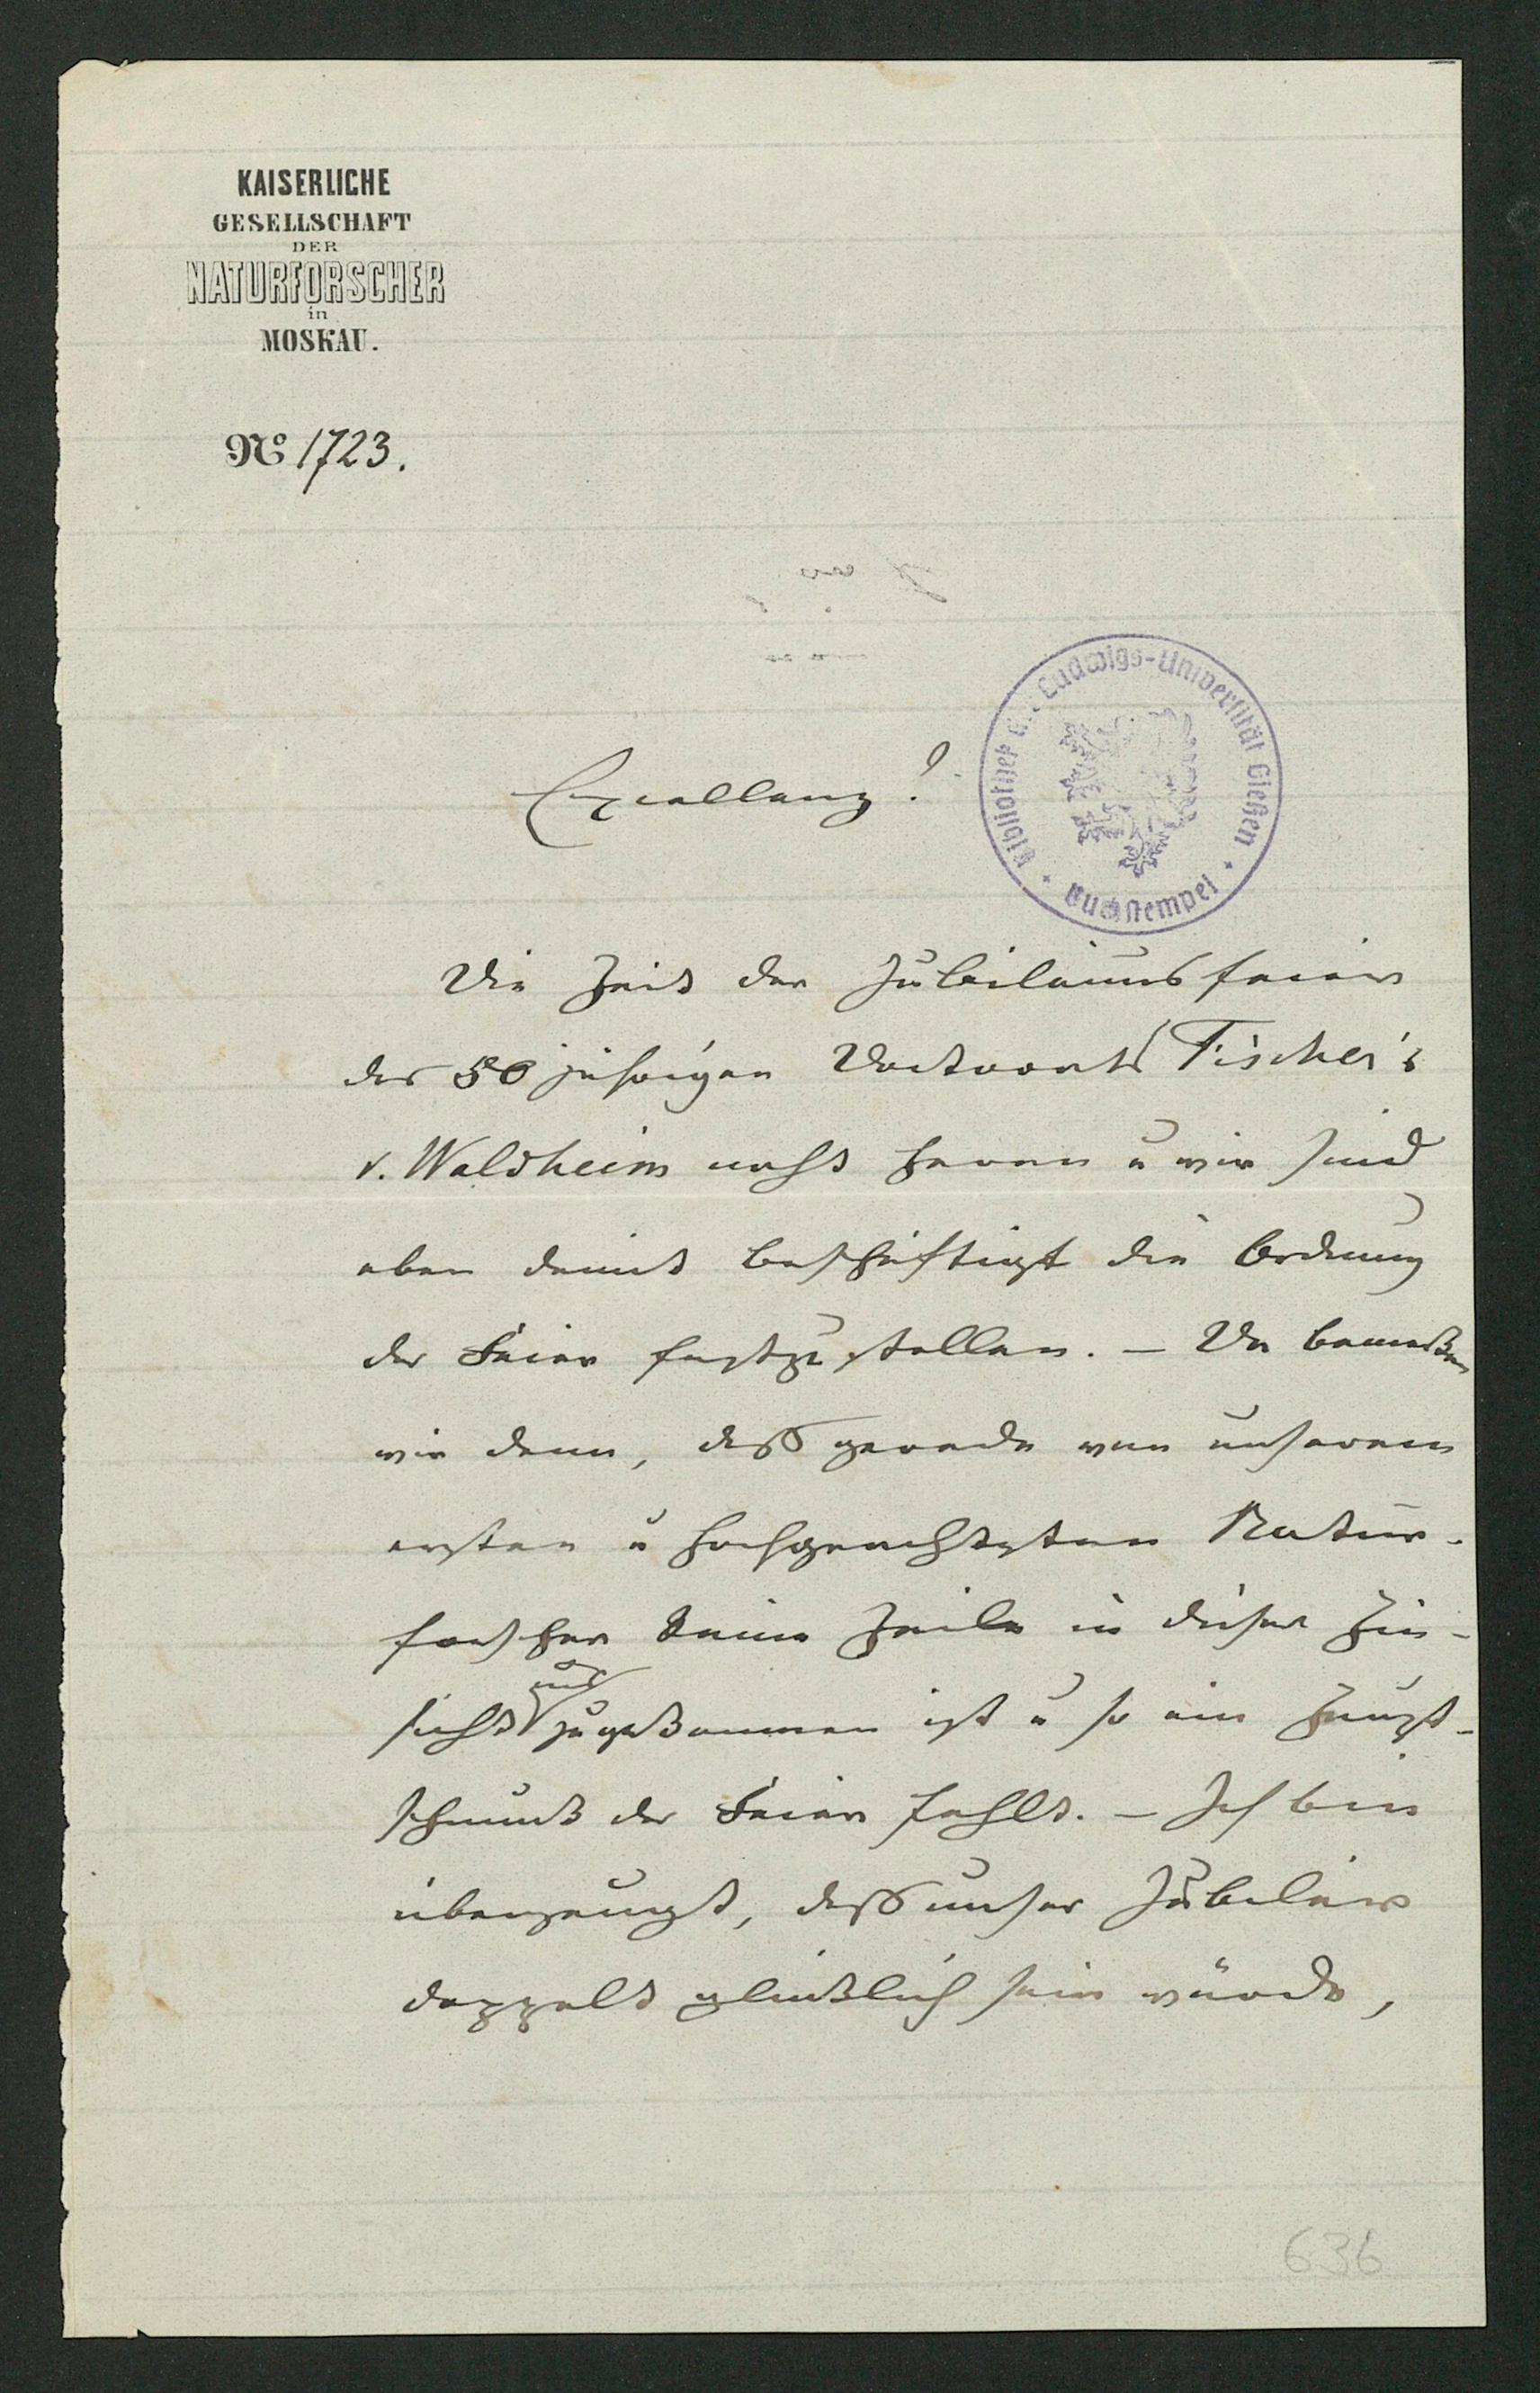 KAISERLICHE
GESELLSCHAFT
DER
NATURFORSCHER
in
MOSKAU.
No 1723.
Excellenz!
Bibliothek d. Ludwigs-Universität Gießen
Buchstempel
Die Zeit der Jubiläumsfeier
des 50 jährigen Doctorats Fischer's
v. Waldheim naht heran u wir sind
eben damit beschäftigt die Ordnung
der Feier festzustellen. – Da bemerken
wir denn, daß gerade von unserem
ersten u hochgeachtetsten Natur-
forscher keine Zeile in dieser Hin-
sicht uns zugekommen ist u so ein Haupt-
schmuck der Feier fehlt. – Ich bin
überzeugt, daß unser Jubilar
doppelt glücklich sein würde,
636